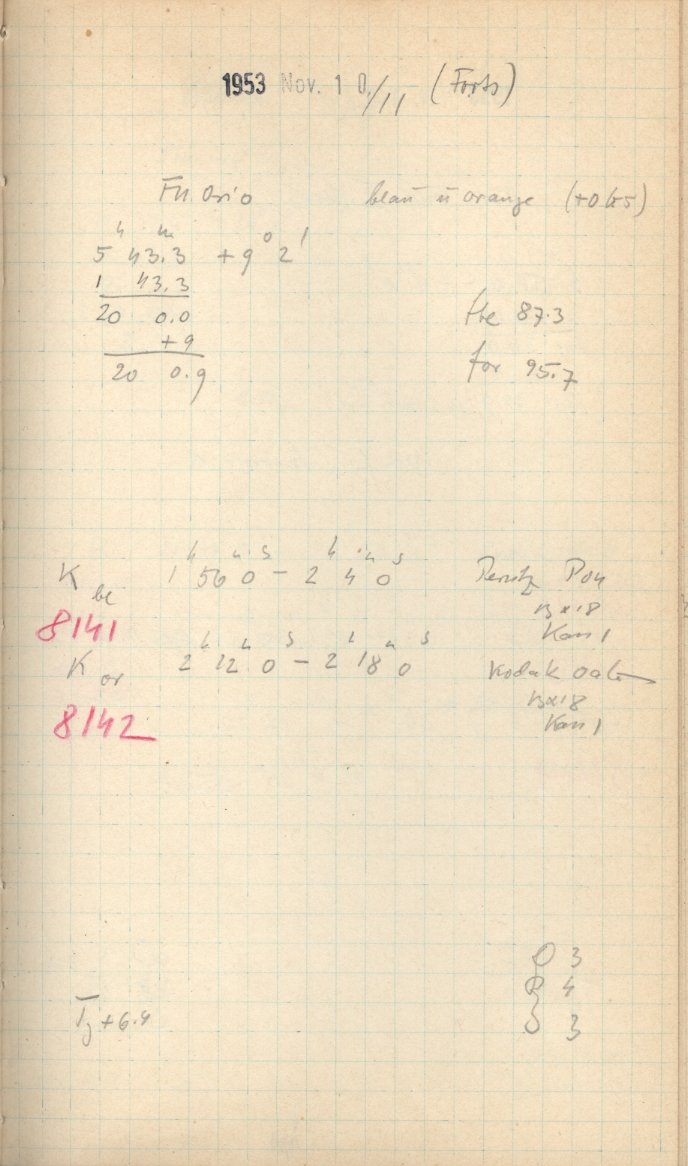 1953 Nov. 10/11 (Forts)
FU Orio blau u orange (+0
5h 43.3m +9° 2'
1 43.3
20 0.0
+9
20 0.9
87.3
for 95.7
K 1h 56m 0s – 2h 4m 0s Perutz
8141 13x18
Kass 1
K or 2h 12m 0s – 2h 18m 0s Kodak
8142 13x18
Kass 1
3
4
+6.4
3